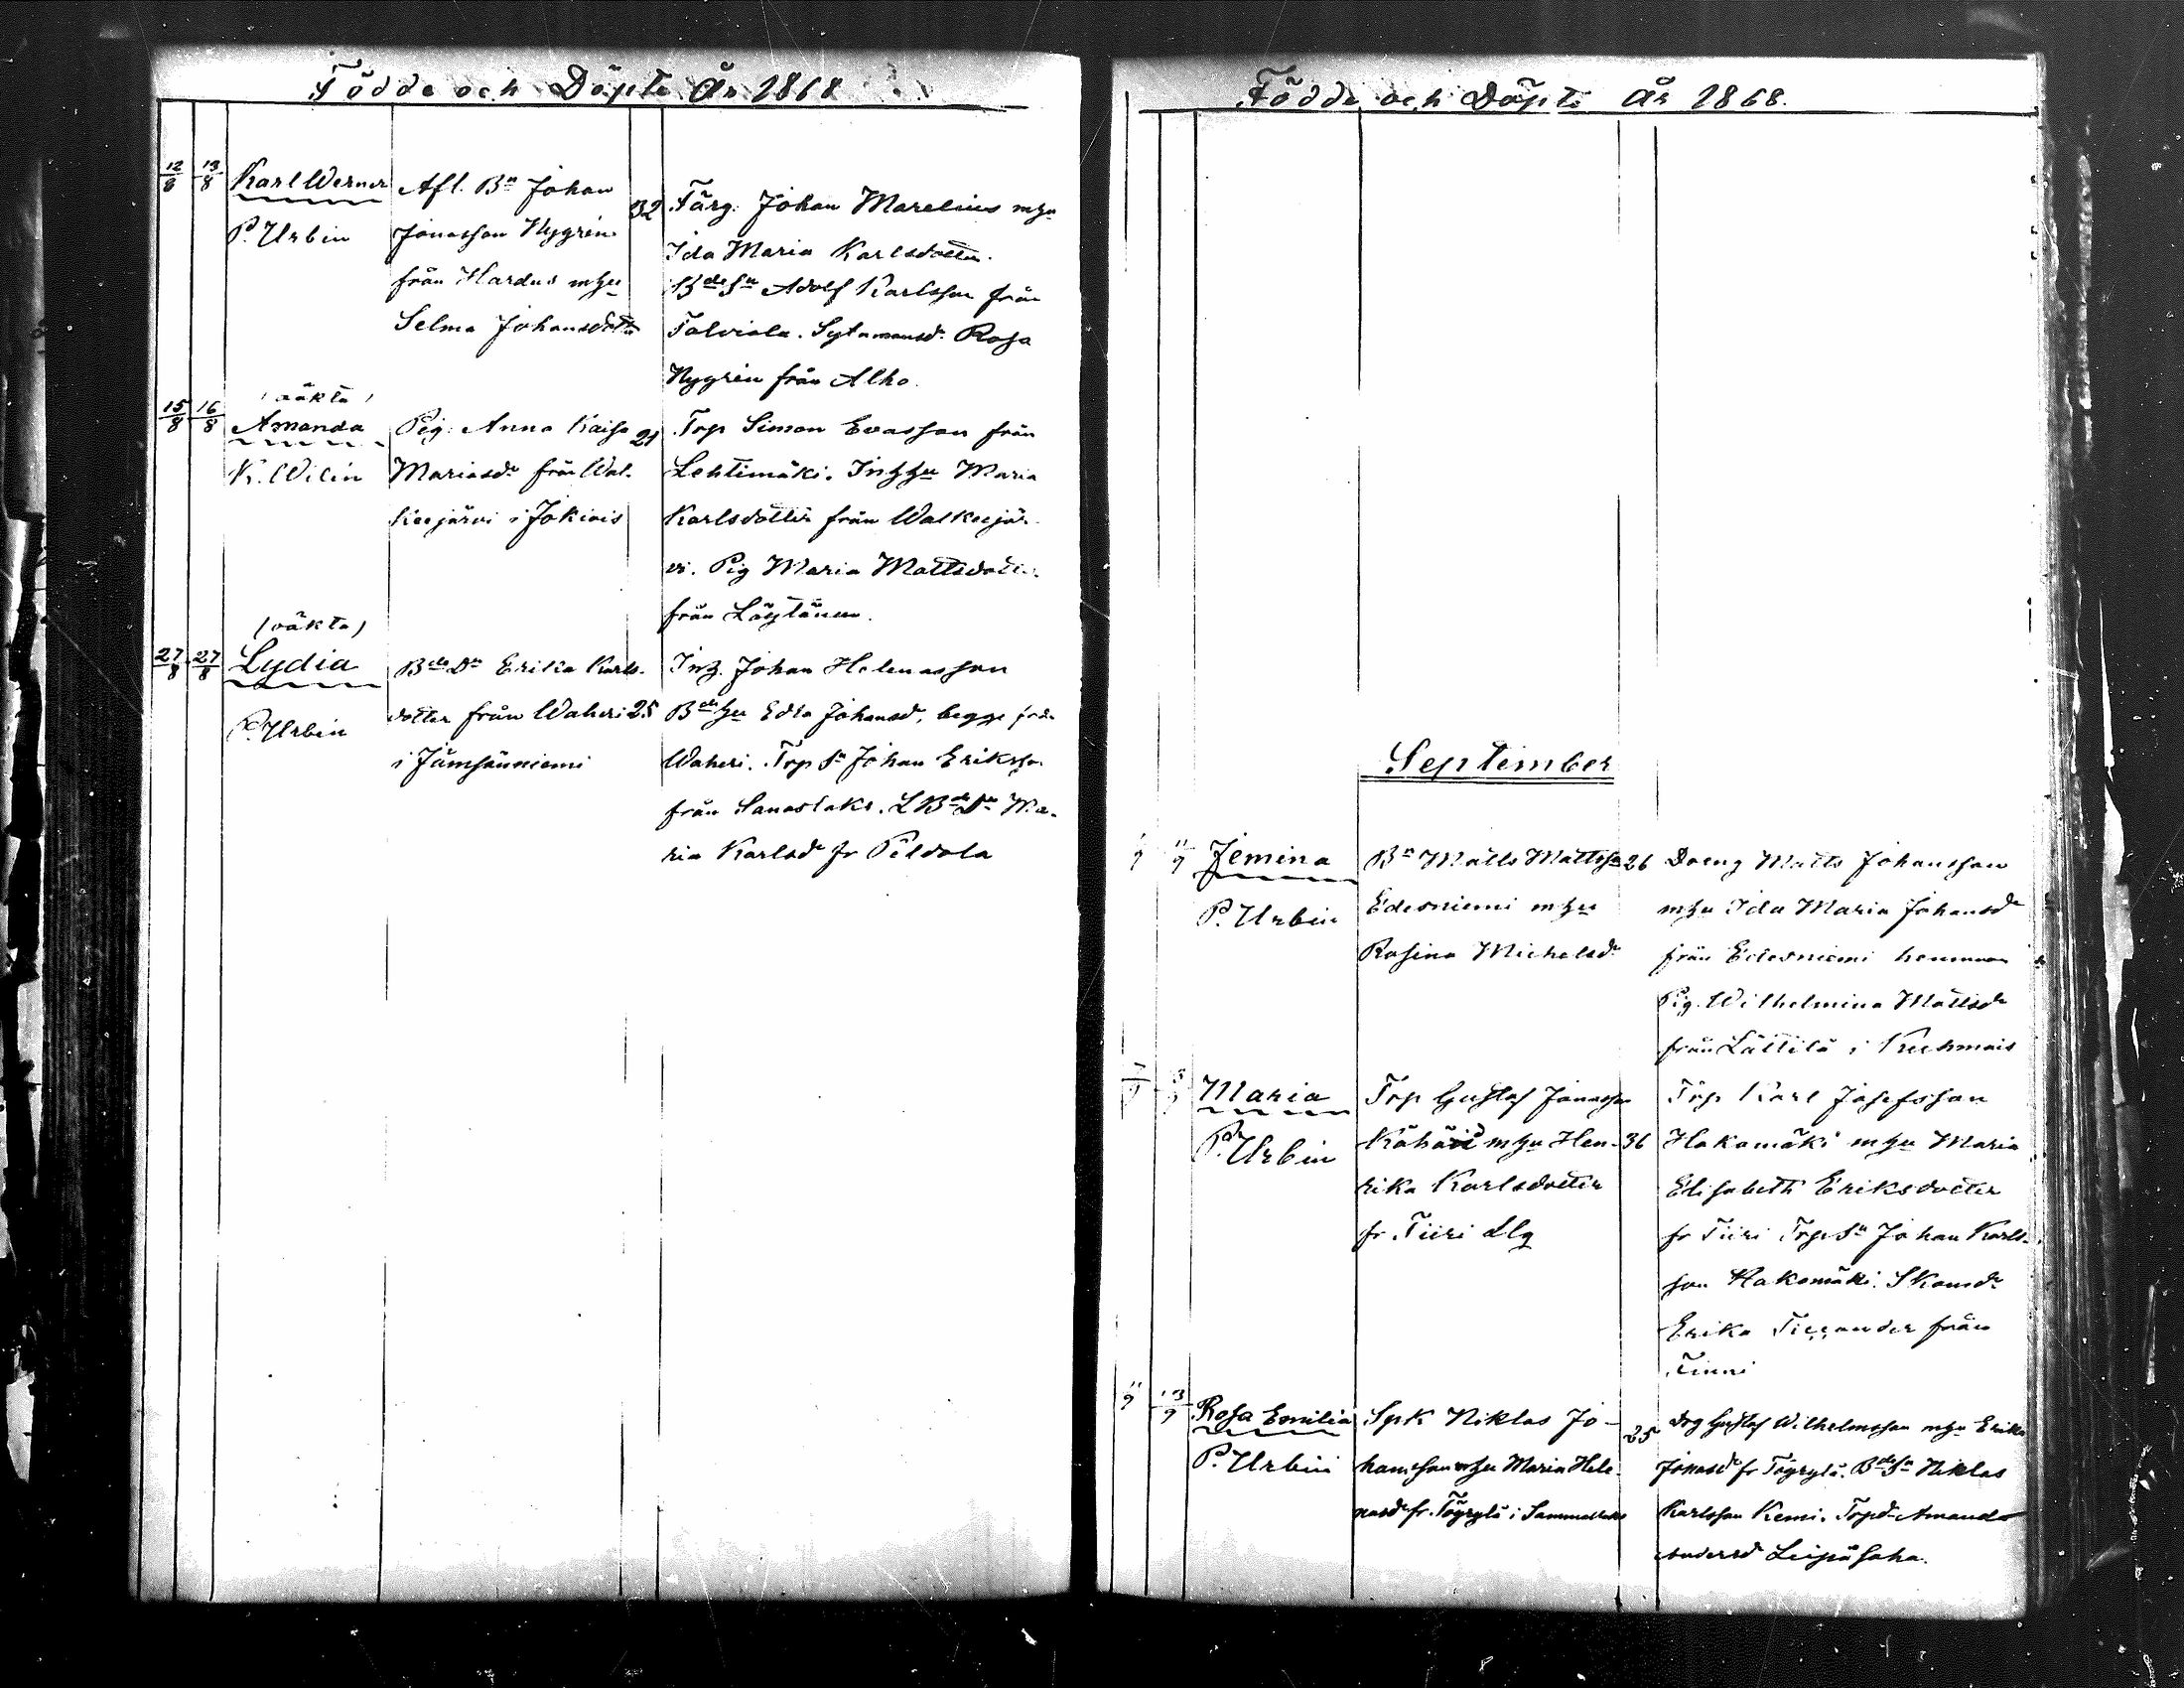 Födde och Döpte År 1868
12/8 13/8 Karl Werner
P. Urbin
Afl. Bn Johan
Jonasson Nygrén
från Hardus m hu
Selma Johansdotter
32
Färg. Johan Marelius m hu
Ida Maria Karlsdotter.
Bde Sn Adolf Karlsson från
Talviala. Sytamansdr Rosa
Nygrén från Alho.
15/8 16/8 (oäkta)
Amanda
K. Wilén
Pig. Anna Kaisa
Mariasdr från Wal-
keejärvi i Jokiois
21
Trp Simon Evasson från
Lehtimäki. Inh hu Maria
Karlsdotter från Walkeejär-
vi. Pig Maria Mattsdotter
från Löytänen.
27/8 27/8 (oäkta)
Lydia
P. Urbin
Bde Dr Erika Karls-
dotter från Waheri
i Jämsänniemi
25
Inh. Johan Helenasson
Bde hu Edla Johansd, begge från
Waheri. Trp Sn Johan Eriksson
från Sanaslaks. L Bde Dr Ma-
ria Karlsdr fr Peldola
Födde och Döpte År 1868.
September
9 11/9 Jemina
P. Urbin
Bn Matts Mattsson
Edesniemi m hu
Rosina Michelsdr
26
Dreng Matts Johansson
m hu Ida Maria Johansdr
från Edesniemi hemman
Pig. Wilhelmina Mattsdr
från Lättilä i Kuhmois
Maria
P. Urbin
Trp Gustaf Jonasson
m hu Hen-
rika Karlsdotter
fr. Tiiri Llg
36
Trp Karl Josefsson
Hakamäki m hu Maria
Elisabeth Eriksdotter
fr Tiiri Trp Sn Johan Karls-
son Hakamäki. Skomdr
Erika från
11/9 13/9 Rosa Emilia
P. Urbin
Spk Niklas Jo-
hansson m hu Maria Hele-
nasdr fr. Töyrylä i Sammallaks
25
Drg Gustaf Wilhelmsson m hu Erika
Jonasdr fr Töyrylä. Bde Sn Niklas
Karlsson Kemi. Trpdr Amanda
Andersdr Leipäsaha.